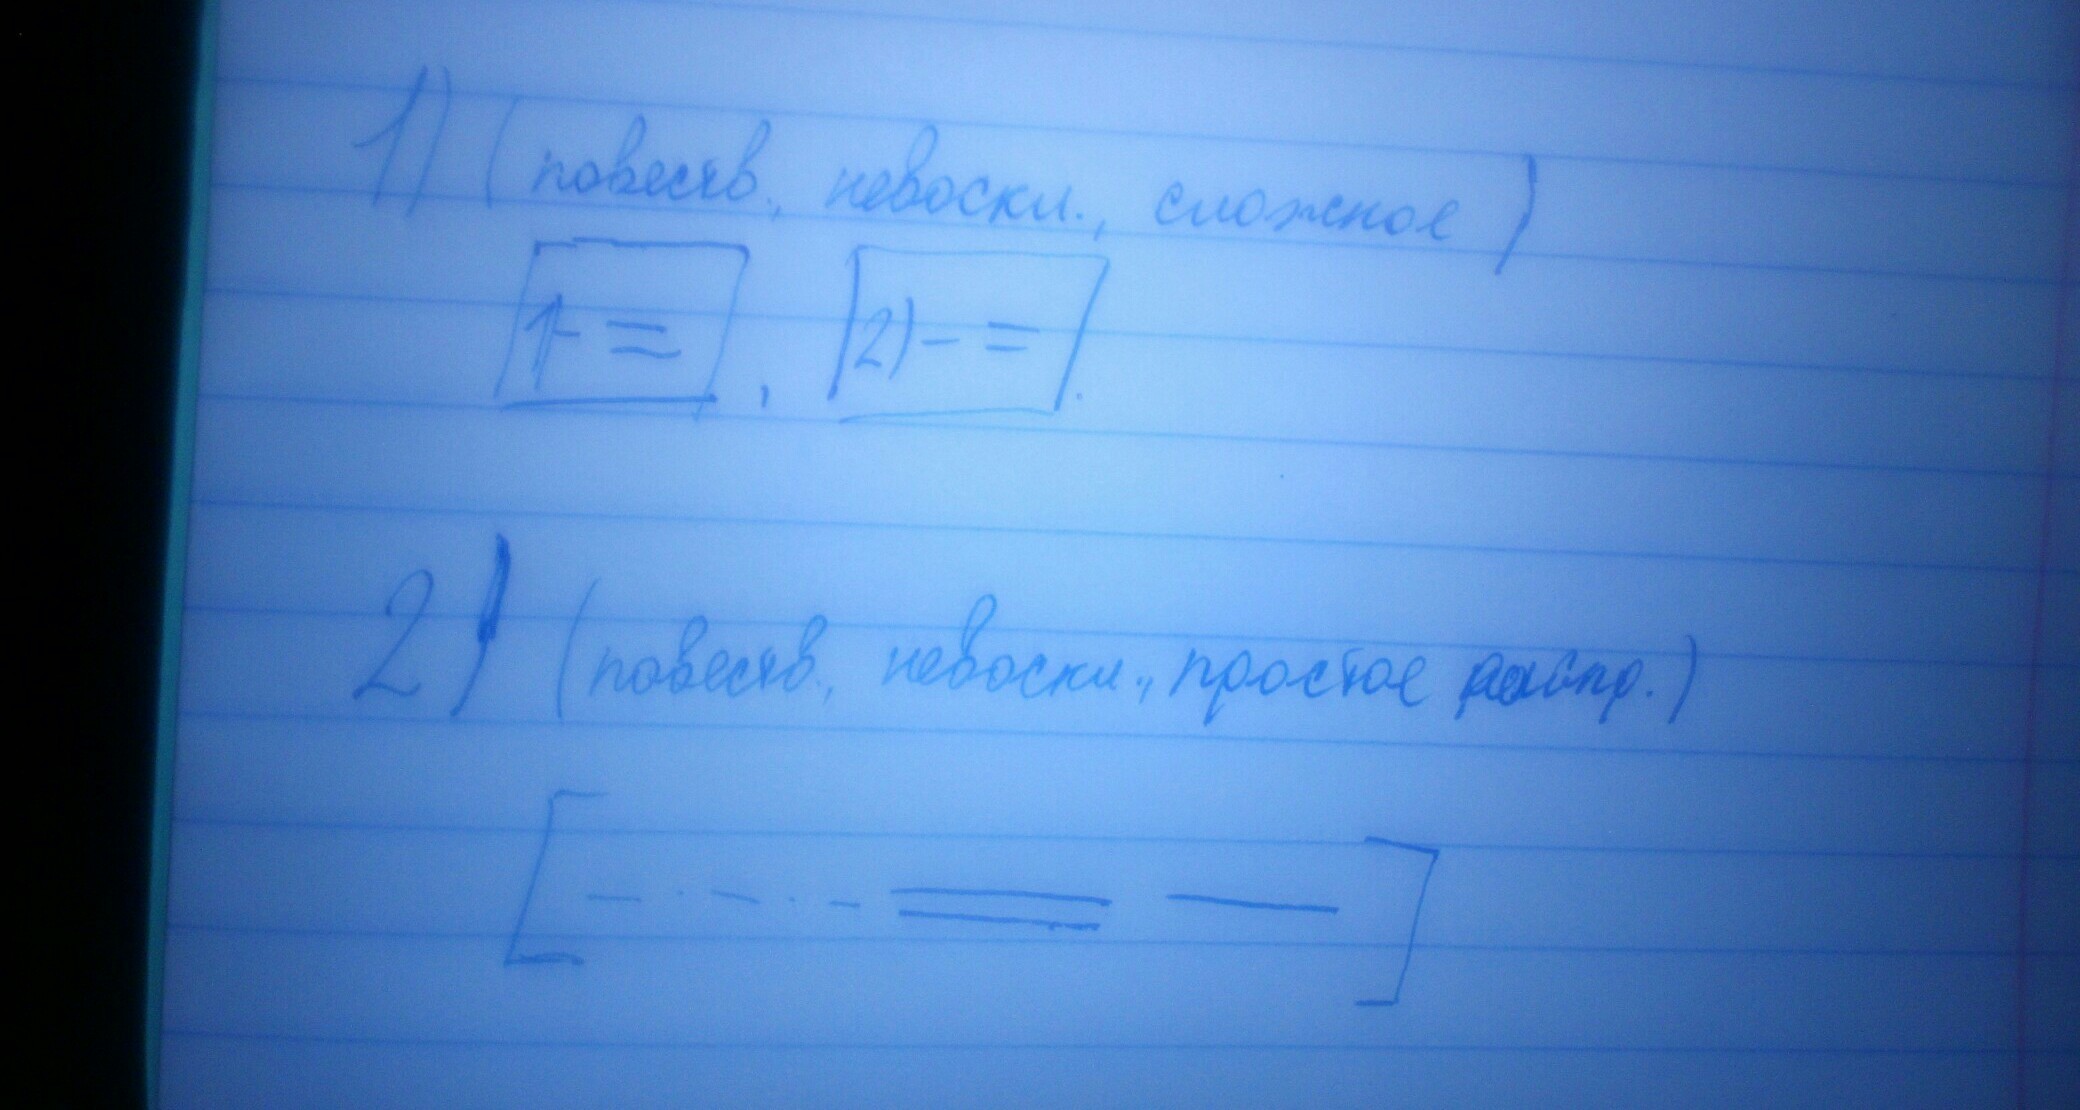 1) (повеств., невоскл., сложное)
[1 - =], [2) - =].
2) (повеств., невоскл., простое распр.)
[- · - · - = -]